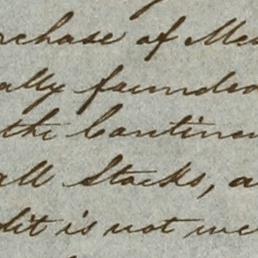 rchase of Me
ally founded
the Continen
all Stocks, a
dit is not we